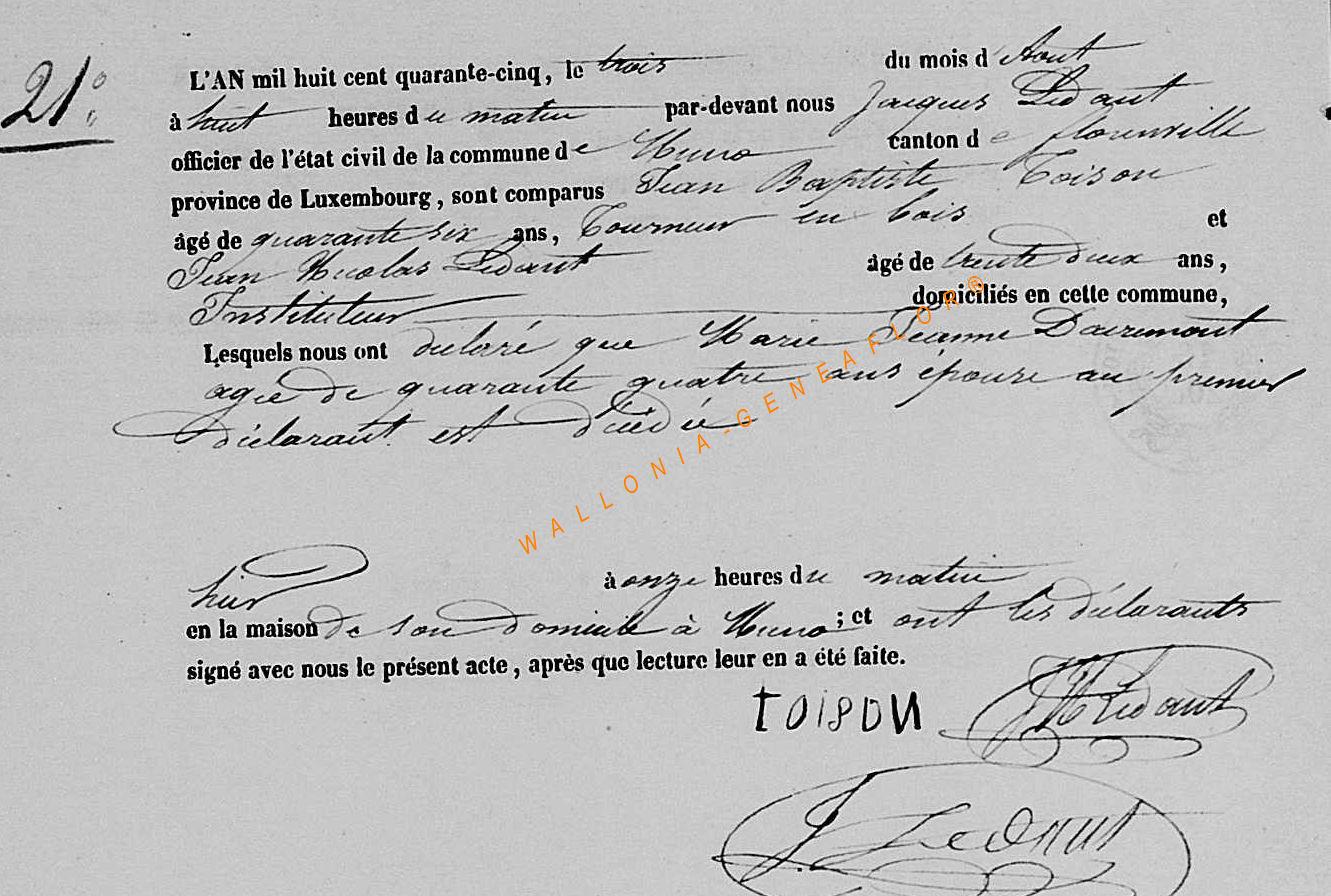 21°
L'AN mil huit cent quarante-cinq, le trois du mois d'Aout
à huit heures du matin par-devant nous Jacques Ledant
officier de l'état civil de la commune de Muno canton de florenville
province de Luxembourg, sont comparus Jean Baptiste Toison
âgé de quarante six ans, Tourneur en bois et
Jean Nicolas Ledant âgé de trente deux ans,
Instituteur domiciliés en cette commune,
Lesquels nous ont déclaré que Marie Jeanne Dairemont
agée de quarante quatre ans épouse au premier
déclarant est décédée
hier à onze heures du matin
en la maison de son domicile à Muno; et ont les déclarants
signé avec nous le présent acte, après que lecture leur en a été faite.
TOISON JNLedant
J. Ledant
WALLONIA-GENEAFLOR®